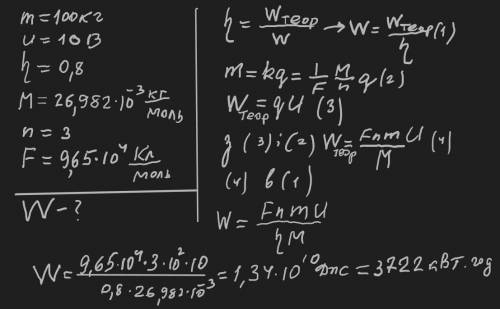 m = 100 кг
u = 10 В
η = 0,8
M = 26,982·10⁻³ кг/моль
n = 3
F = 9,65·10⁴ Кл/моль
W - ?
η = Wтеор/W → W = Wтеор/η (1)
m = kq = 1/F M/n q (2)
Wтеор = qU (3)
з (3) і (2) Wтеор = FnmU/M (4)
(4) в (1)
W = FnmU/ηM
W = 9,65·10⁴·3·10²·10/0,8·26,982·10⁻³ = 1,34·10¹⁰ Дж = 3722 кВт·год